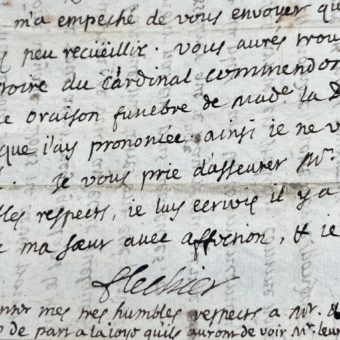 m'a empeché de vous envoyer qu
peu recueillir. vous aurés trou
toire du cardinal commendon
e oraison funebre de made la D
que i'ay prononcée. ainsi ie ne v
Ie vous prie d'asseurer Mr.
les respects, ie luy ecrivis il y a
e ma sœur avec affection, & ie
flechier
mes tres humbles respects a Mr. &
de part a la ioye qu'ils auront de voir Mr. leur